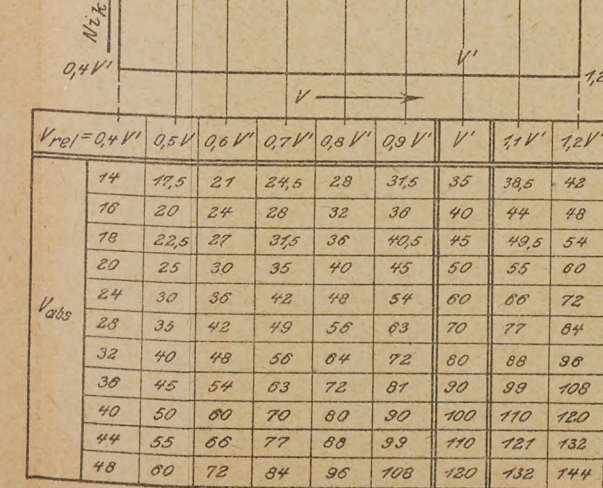 Nik
0,4V' V' 1,2
V
Vrel=0,4V' 0,5V 0,6V' 0,7V' 0,8V' 0,9V' V' 1,1V' 1,2V'
14 17,5 21 24,5 28 31,5 35 38,5 42
16 20 24 28 32 36 40 44 48
18 22,5 27 31,5 36 40,5 45 49,5 54
20 25 30 35 40 45 50 55 60
Vabs 24 30 36 42 48 54 60 66 72
28 35 42 49 56 63 70 77 84
32 40 48 56 64 72 80 88 96
36 45 54 63 72 81 90 99 108
40 50 60 70 80 90 100 110 120
44 55 66 77 88 99 110 121 132
48 60 72 84 96 108 120 132 144